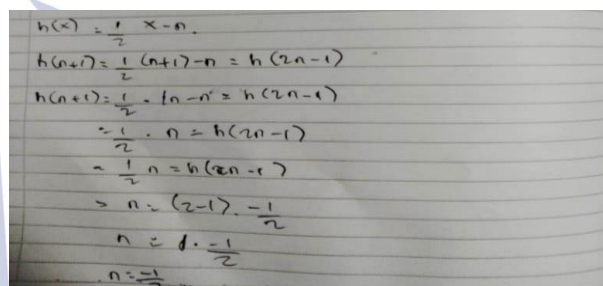 h(x) = 1/2 x - n.
h(n+1) = 1/2 (n+1) - n = h(2n-1)
h(n+1) = 1/2 . 1n - n = h(2n-1)
= 1/2 . n = h(2n-1)
= 1/2 n = h(2n-1)
> n = (2-1). -1/2
n = 1. -1/2
n = -1/2